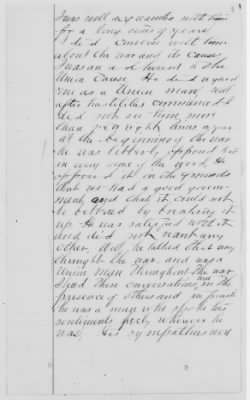 I was well acquainted with him
for a long series of years
I did converse with him
about the war and its causes
I was an adherent to the
Union Cause. He did regard
me as a Union man, well
after hostilities commenced I
did not see him more
than very eight times a year
at the beginning of the war
he was bitterly opposed to it
in every sense of the word. He
opposed it on the grounds
that we had a good govern-
ment, and that it could not
be bettered by breaking it
up. He was satisfied with it
and did not want any
other. Well, he talked that way
through the war, and was a
Union man throughout the war
I had these conversations in the
presence of others and in private
he was a man who spoke his
sentiments freely wherever he
was, his sympathies were